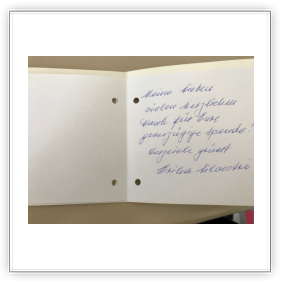 Meine Lieben
vielen herzlichen
Dank für Eure
grosszügige Spende!
Herzlich grüsst